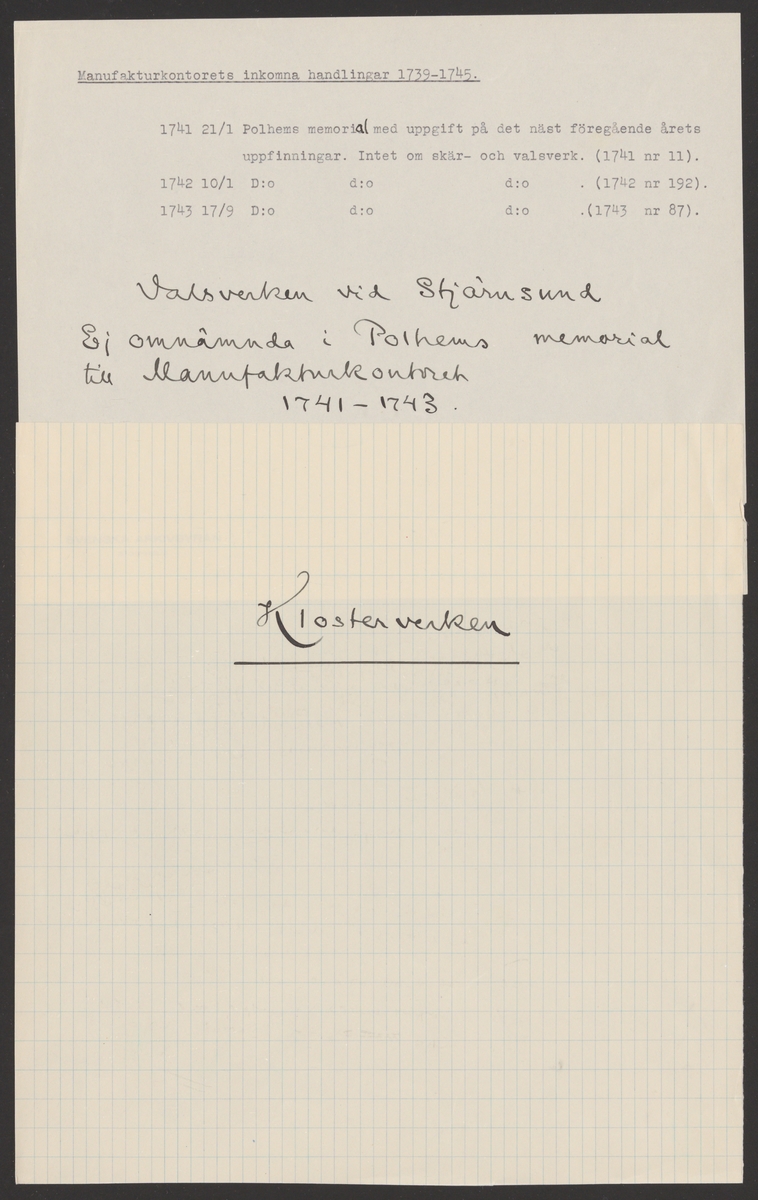 Manufakturkontorets inkomna handlingar 1739-1745.
1741 21/1 Polhems memorial med uppgift på det näst föregående årets
uppfinningar. Intet om skär- och valsverk. (1741 nr 11).
1742 10/1 D:o d:o d:o . (1742 nr 192).
1743 17/9 D:o d:o d:o .(1743 nr 87).
Valsverken vid Stjärnsund
Ej omnämnda i Polhems memorial
till Manufakturkontoret
1741 - 1743.
Klosterverken